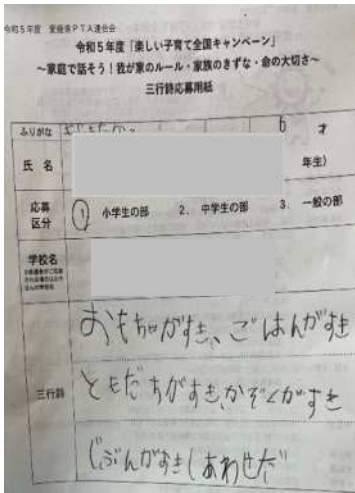 令和5年度 愛媛県PTA連合会
令和5年度「楽しい子育て全国キャンペーン」
～家庭で話そう!我が家のルール・家族のきずな・命の大切さ～
三行詩応募用紙
ふりがな
6 才
氏 名
年生)
応募区分
1. 小学生の部 2. 中学生の部 3. 一般の部
学校名
三行詩
おもちゃがすき、ごはんがすき
ともだちがすき、かぞくがすき
じぶんがすきしあわせだ